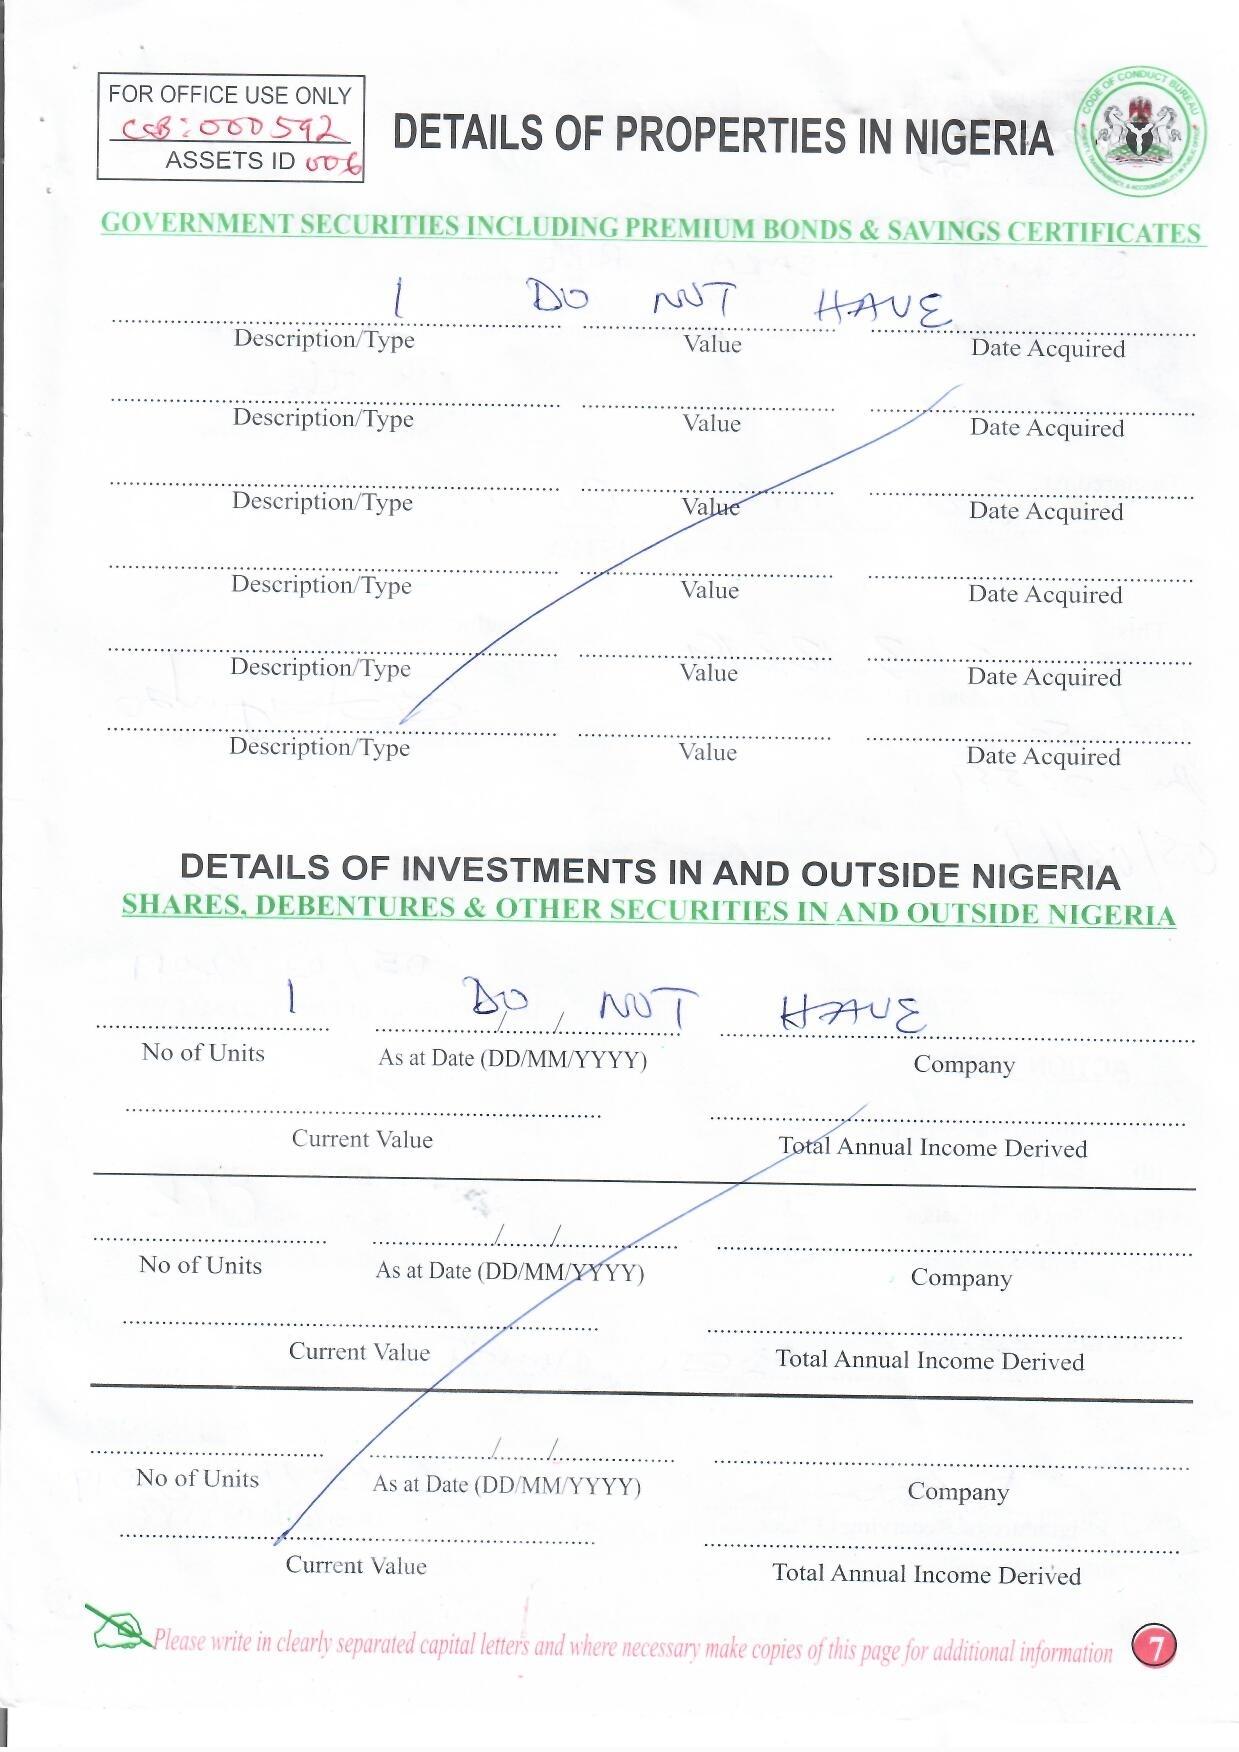 FOR OFFICE USE ONLY
CCB: 000592
ASSETS ID 006
DETAILS OF PROPERTIES IN NIGERIA
CODE OF CONDUCT BUREAU
GOVERNMENT SECURITIES INCLUDING PREMIUM BONDS & SAVINGS CERTIFICATES
I DO NOT HAVE
Description/Type Value Date Acquired
Description/Type Value Date Acquired
Description/Type Value Date Acquired
Description/Type Value Date Acquired
Description/Type Value Date Acquired
Description/Type Value Date Acquired
DETAILS OF INVESTMENTS IN AND OUTSIDE NIGERIA
SHARES, DEBENTURES & OTHER SECURITIES IN AND OUTSIDE NIGERIA
I DO NOT HAVE
/ /
No of Units As at Date (DD/MM/YYYY) Company
Current Value Total Annual Income Derived
/ /
No of Units As at Date (DD/MM/YYYY) Company
Current Value Total Annual Income Derived
/ /
No of Units As at Date (DD/MM/YYYY) Company
Current Value Total Annual Income Derived
Please write in clearly separated capital letters and where necessary make copies of this page for additional information
7